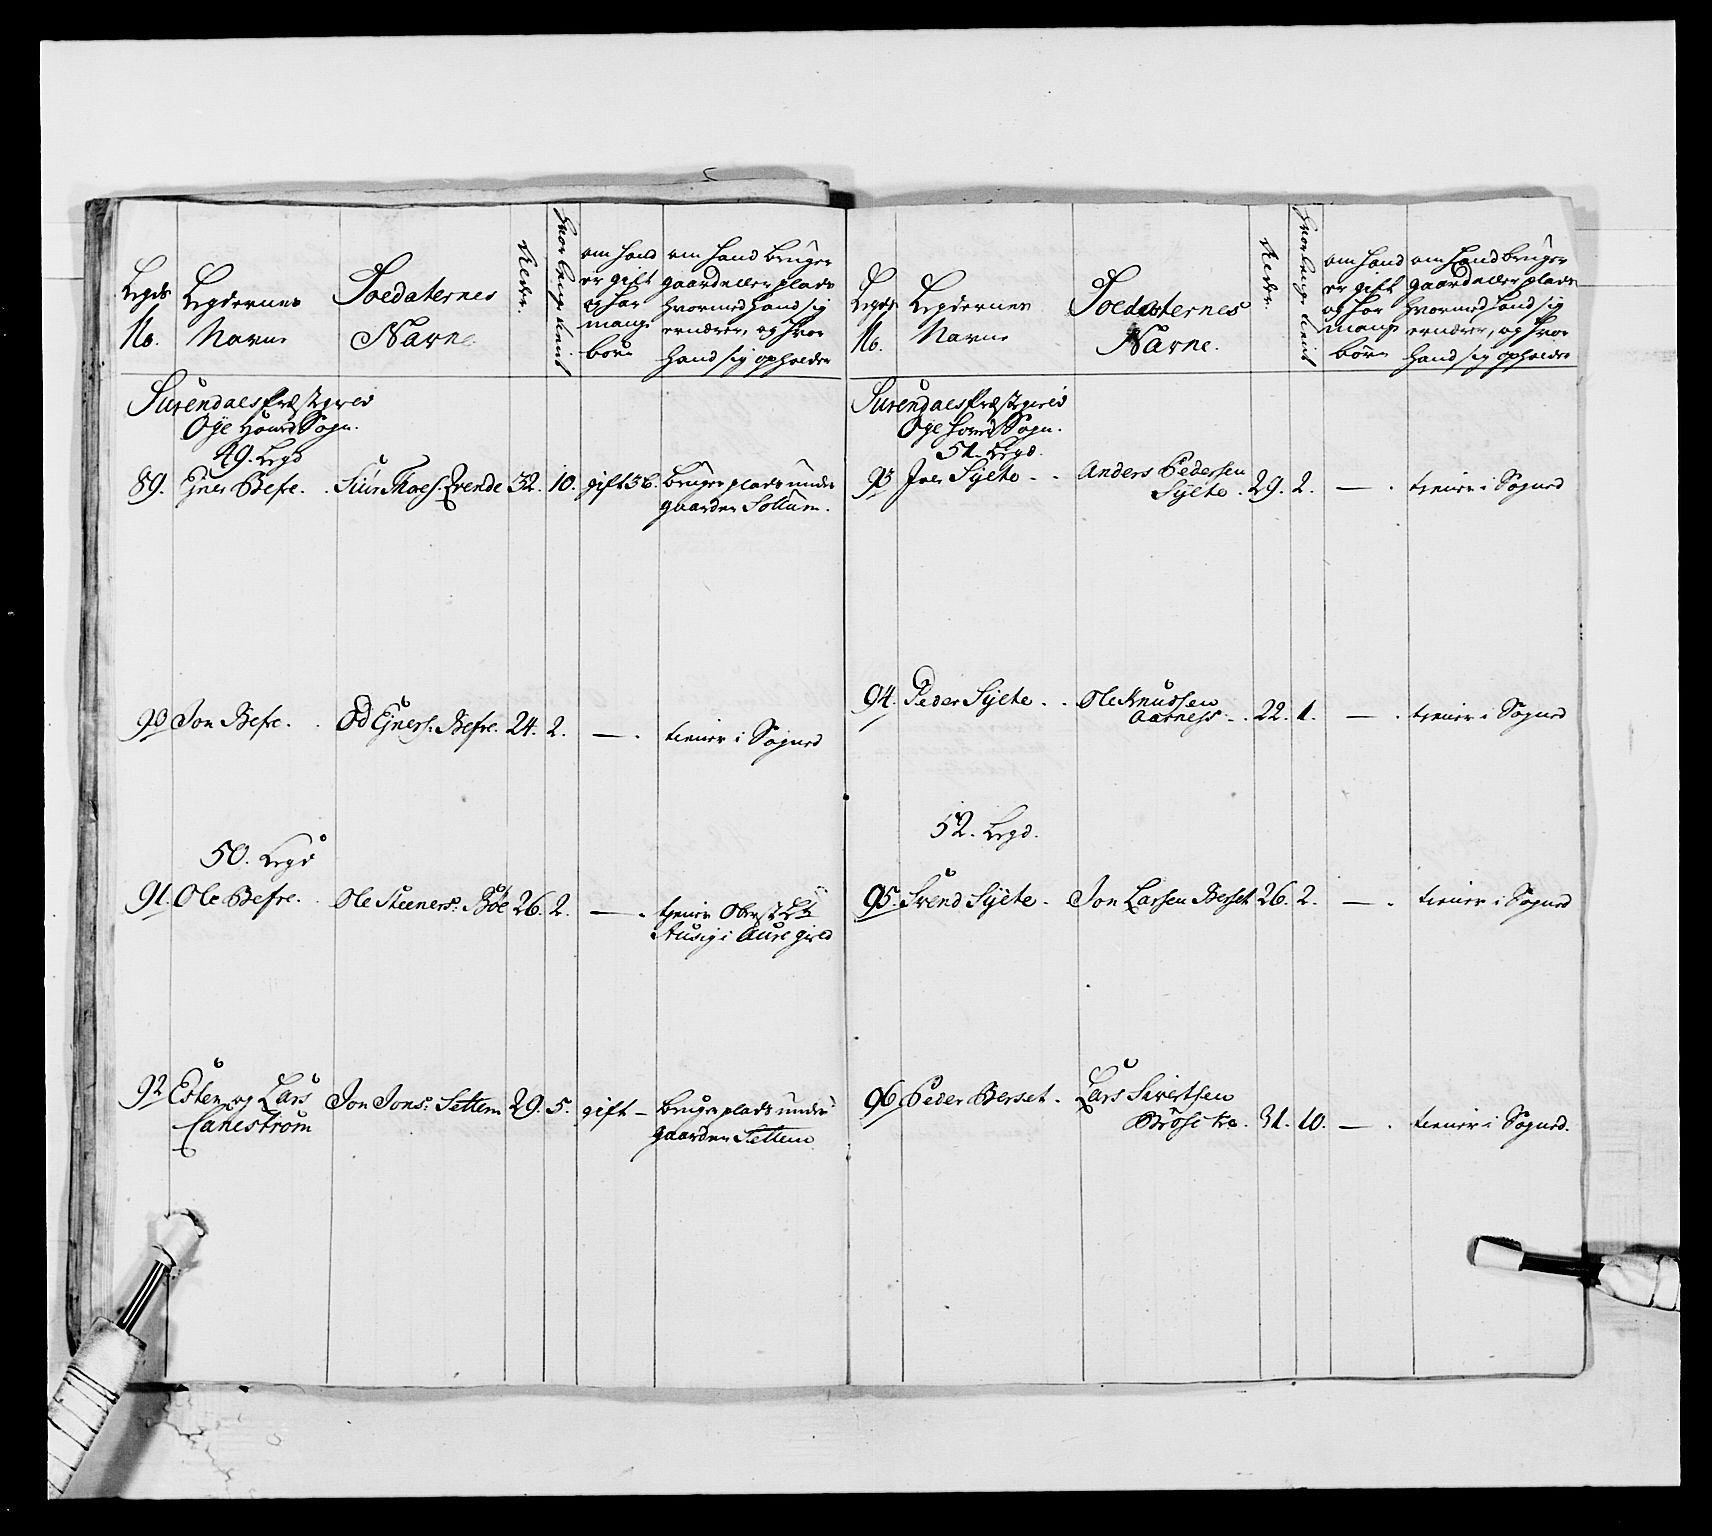 Legds No.
Legdernes Navne
Soldaternes Navne
Alder.
hvor lenge tient
om hand er gift og har mange børn
om hand bruger gaard eller plads hvormed hand sig ernærer, og hvor hand sig opholder
Surendals Præstegield
Øye Hoved Sogn.
49. Legd
89. Ejner Befre. Siur Thoes. Qvende 32. 10. gift 3 b. bruger plads under
gaarden Sollium.
90 Jon Befre. Od Ejners. Befre. 24. 2. — . tiener i Sognet
50. Legd
91. Ole Befre. Ole Steeners: Bøe 26. 2. — . tiener Oberst Lt
i Aure gield
92 Esten og Lars Jon Jons: Settem 29. 5. gift — bruger plads under
Canestrøm gaarden Settem
Legds No.
Legdernes Navne
Soldaternes Navne.
Alder.
hvor lenge tient
om hand er gift og har mange børn
om hand bruger gaard eller plads hvormed hand sig ernærer, og hvor hand sig opholder
Surendals Præstegield
Øye hoved Sogn.
51. Legd.
93 Joen Sylte . . Anders Pedersen
Sylte . 29. 2. — . tiener i Sognet
94. Peder Sylte . . Ole Knudsen
Aarness . 22. 1. — . tiener i Sognet
52. Legd.
95. Svend Sylte . Jon Larsen Berset 26. 2. — . tiener i Sognet
96 Peder Berset . Lars Sivertsen
Brøske . 31. 10. — . tiener i Sognet.